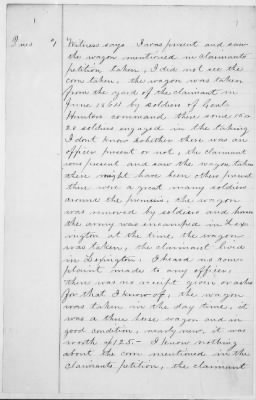 1
Witness says I was present and saw
the wagon mentioned in claimants
petition taken, I did not see the
corn taken, the wagon was taken
from the yard of the claimant in
June 1864 by soldiers of Genl
Hunters command there some 15 or
20 soldiers engaged in the taking
I dont know whether there was an
officer present or not, the claimant
was present and saw the wagon taken
there might have been others present
there were a great many soldiers
around the premises, the wagon
was removed by soldiers and
the army was encamped in Lex-
ington at the time the wagon
was taken, the claimant lived
in Lexington. I heard no com-
plaint made to any officer,
there was no receipt given or asked
for that I know of, the wagon
was taken in the day time, it
was a three horse wagon and in
good condition, nearly new, it was
worth $125.- I know nothing
about the corn mentioned in the
claimants petition, the claimant